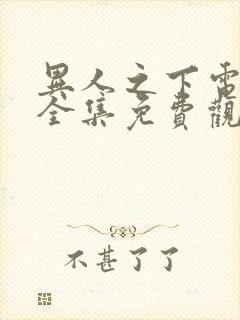 異人之下電
全集免費觀
不甚了了